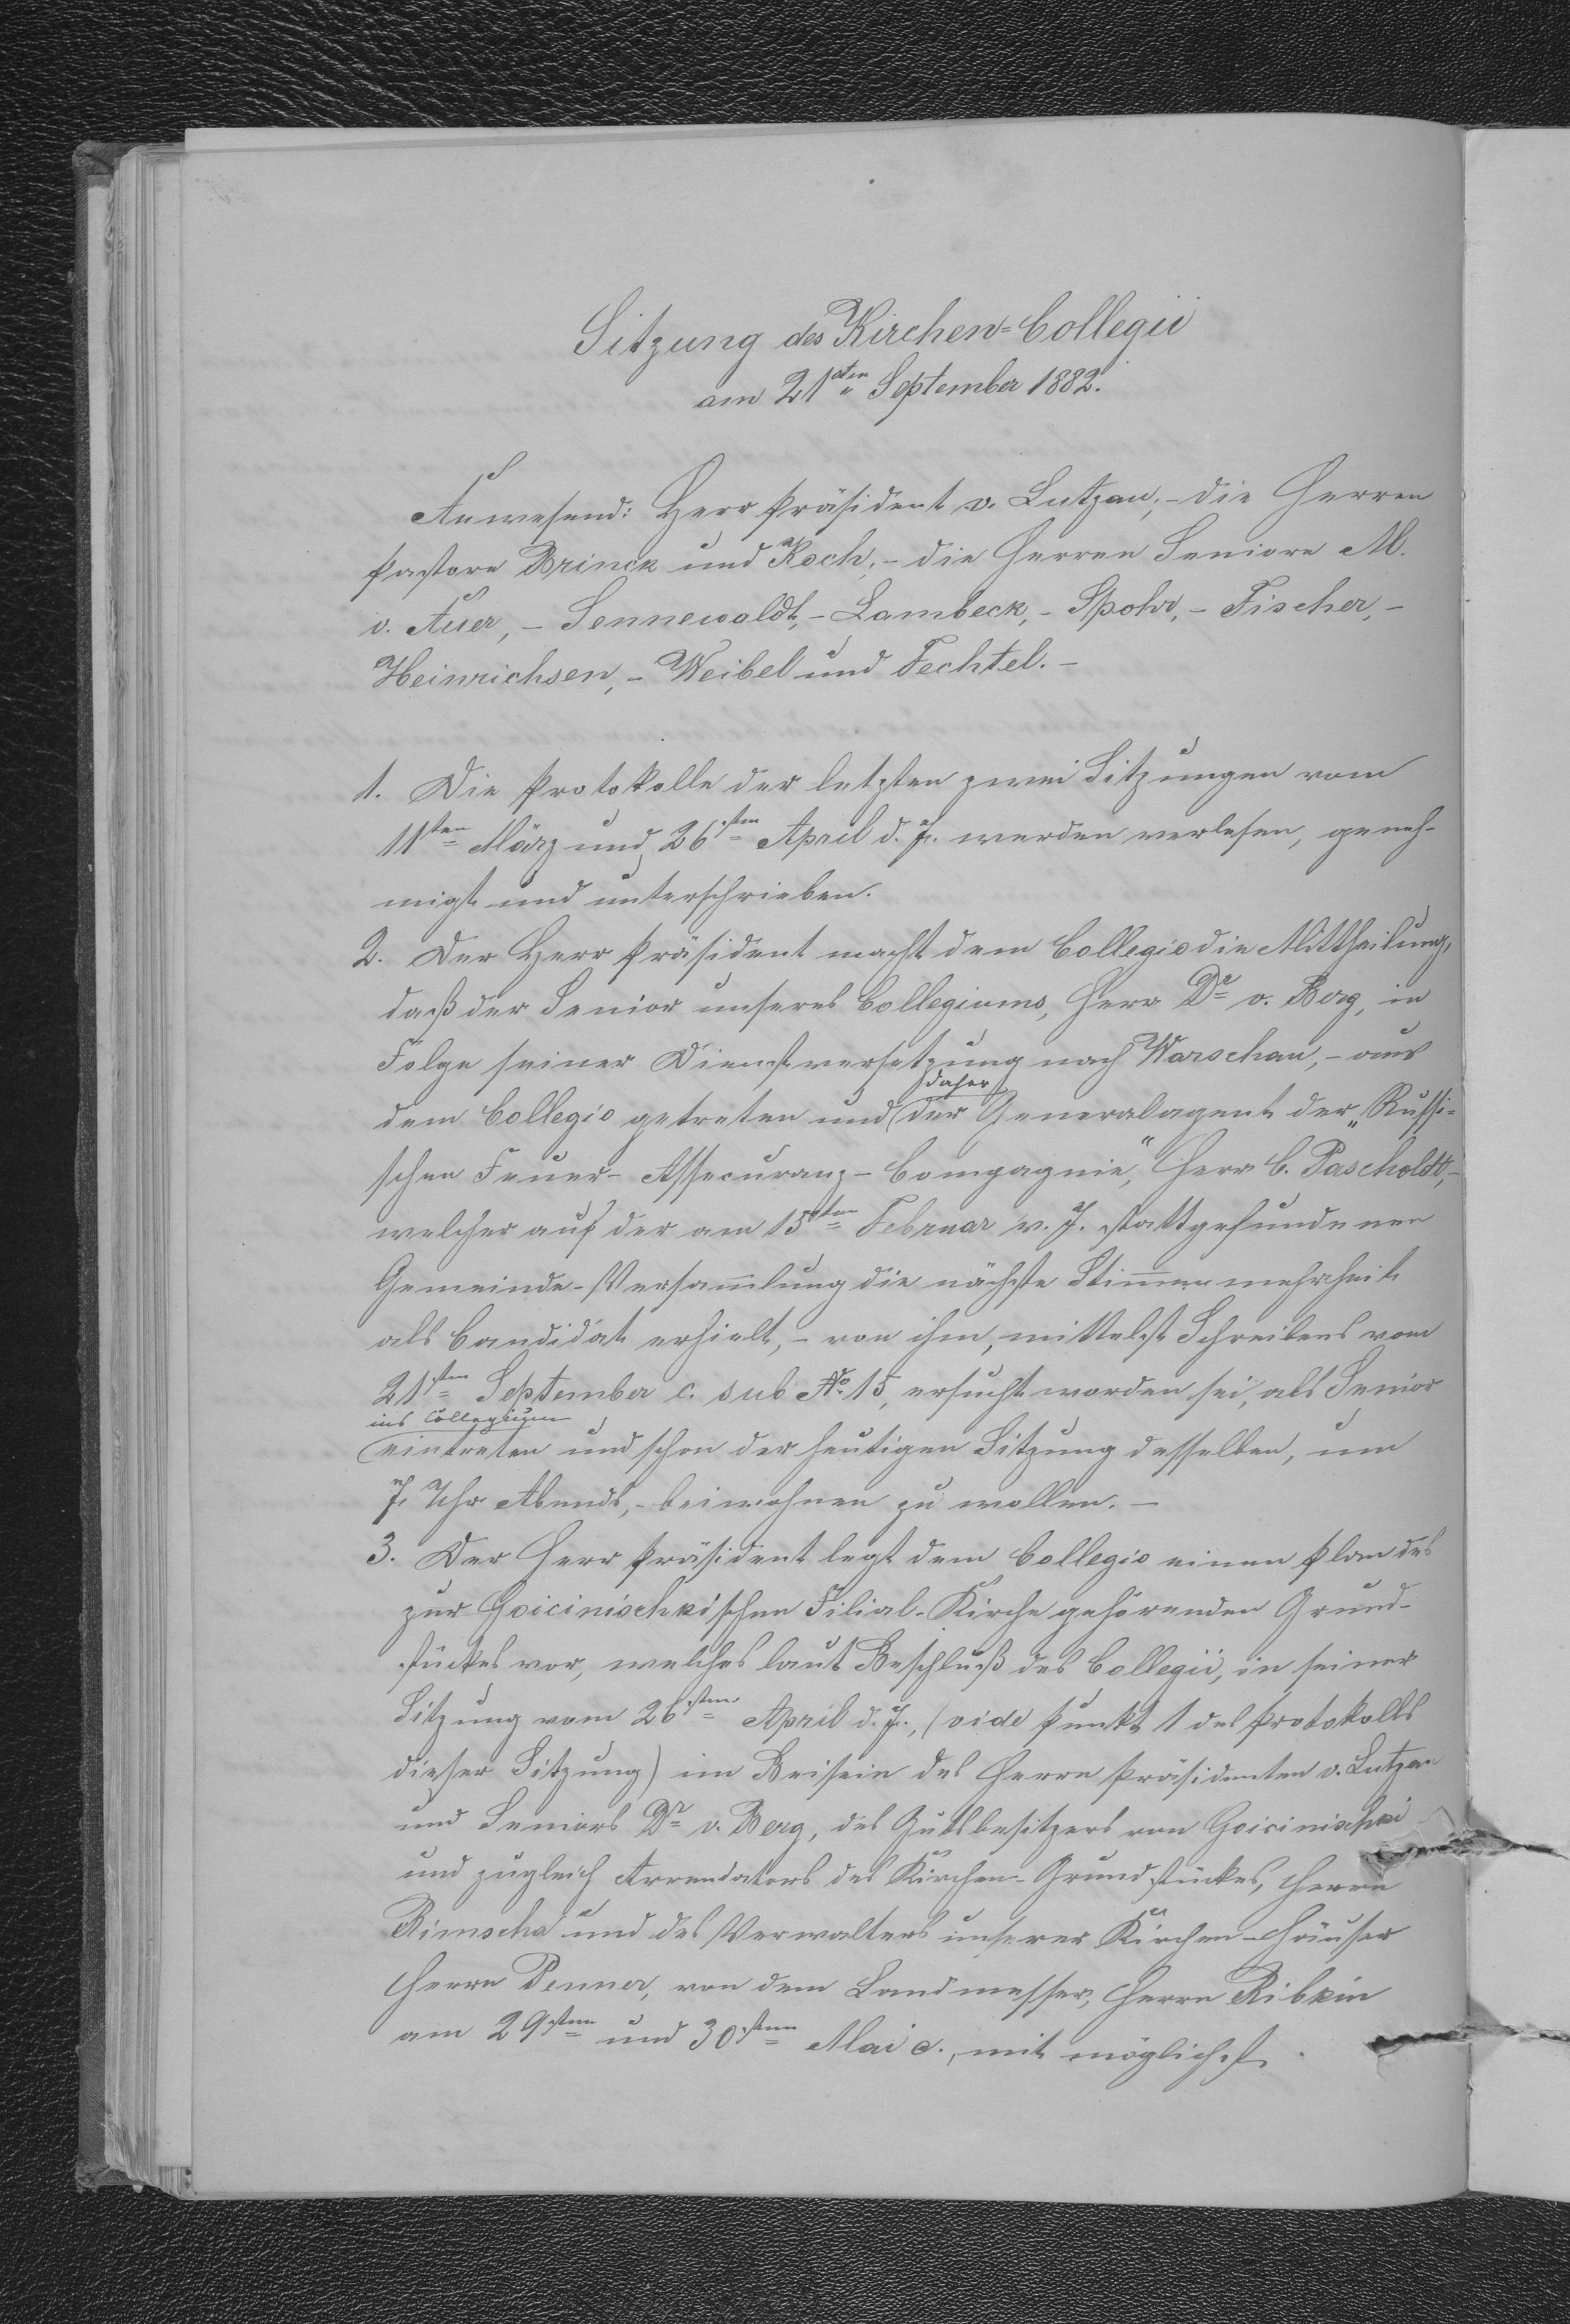 Sitzung des Kirchen-Collegii
am 21sten September 1882.
Anwesend: Herr Präsident v. Lutzau; - die Herren
Pastore Brinck und Koch; - die Herren Seniore M.
v. Auer, - Sennewaldt, - Lambeck, - Spohr, - Fischer, -
Heinrichsen, - Weibel und Fechtel. -
1. Die Protokolle der letzten zwei Sitzungen vom
11ten März und 26sten April d. J. werden verlesen, geneh-
migt und unterschrieben.
2. Der Herr Präsident macht dem Collegio die Mittheilung,
daß der Senior unseres Collegiums, Herr Dr v. Berg, in
Folge seiner Dienstversetzung nach Warschau, - aus
daher
dem Collegio getreten und der Generalagent der „Russi-
schen Feuer-Assecuranz-Compagnie,“ Herr C. Pascholdt, -
welcher auf der am 15ten Februar v. J. stattgefundenen
Gemeinde-Versammlung die nächste Stimmenmehrheit
als Candidat erhielt, - von ihm, mittelst Schreibens vom
21sten September c. sub No 15, ersucht worden sei, als Senior
ins Collegium
eintreten und schon der heutigen Sitzung desselben, um
7 Uhr Abends, - beiwohnen zu wollen. -
3. Der Herr Präsident legt dem Collegio einen Plan des
zur Goicinischki'schen Filial-Kirche gehörenden Grund-
stückes vor, welches laut Beschluß des Collegii, in seiner
Sitzung vom 26sten April d. J., (vide Punkt 1 des Protokolls
dieser Sitzung) im Beisein des Herrn Präsidenten v. Lutzau
und Seniors Dr v. Berg, des Gutsbesitzers von Goicinischki
und zugleich Arrendators des Kirchen-Grundstückes, Herrn
Rimscha und des Verwalters unserer Kirchen-Häuser
Herrn Penner, von dem Landmesser, Herrn Ribkin
am 29sten und 30sten Mai c., mit möglichst